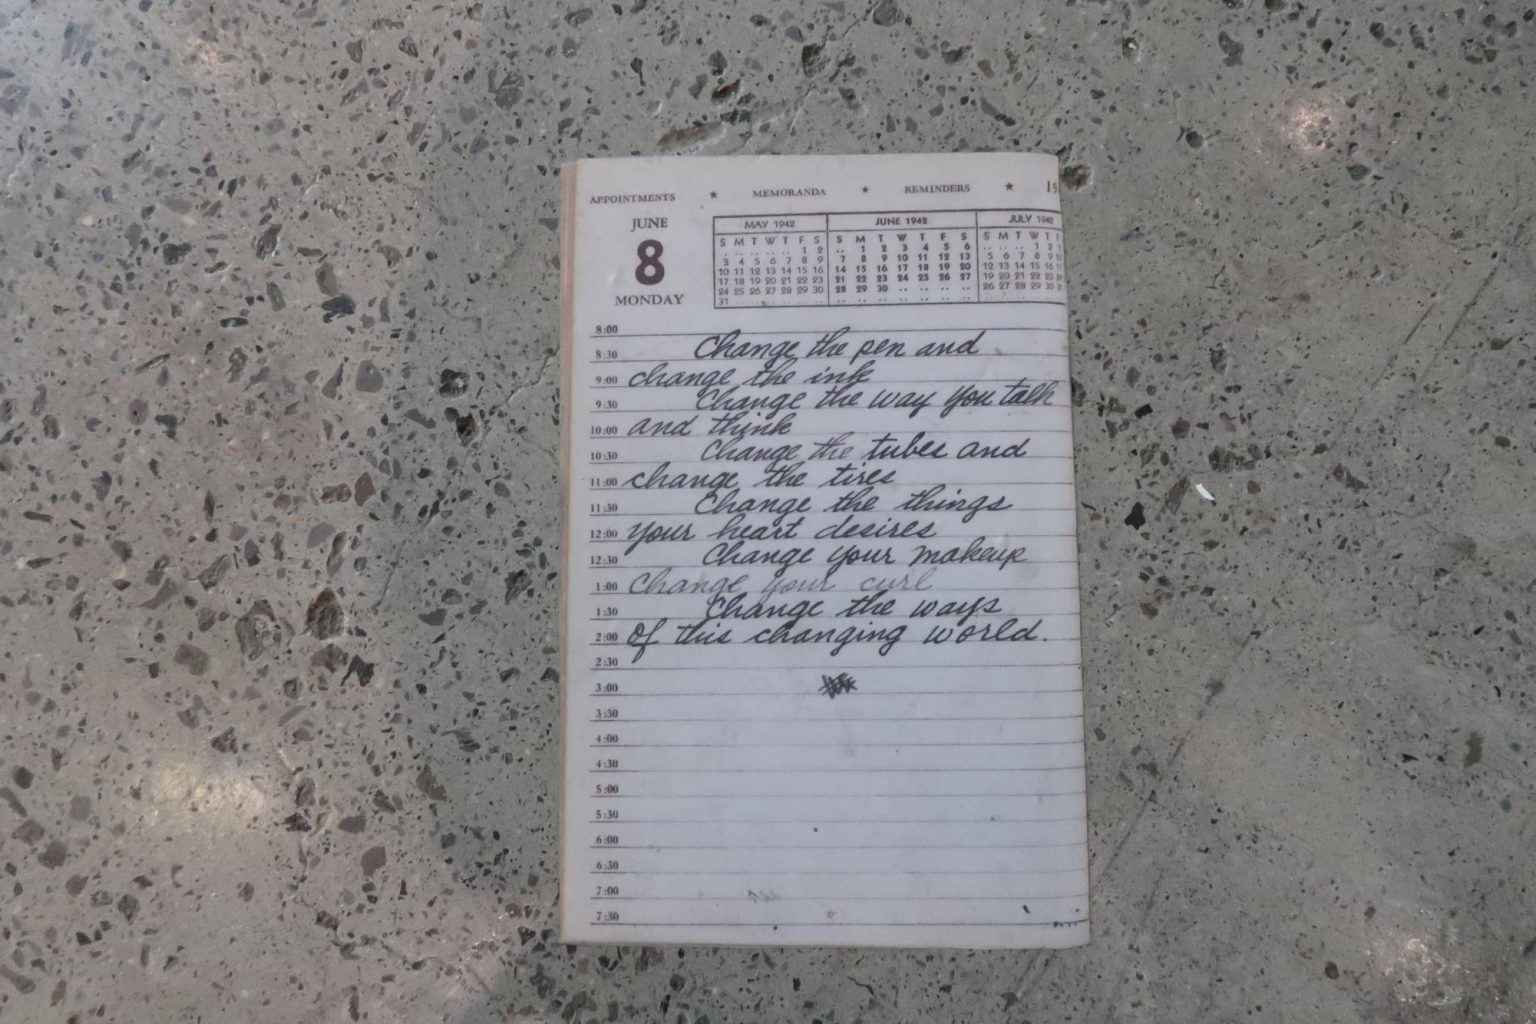 APPOINTMENTS ★ MEMORANDA ★ REMINDERS ★ 19
JUNE
8
MONDAY
MAY 1942
S M T W T F S
.. .. .. .. .. 1 2
3 4 5 6 7 8 9
10 11 12 13 14 15 16
17 18 19 20 21 22 23
24 25 26 27 28 29 30
31 .. .. .. .. .. ..
JUNE 1942
S M T W T F S
.. 1 2 3 4 5 6
7 8 9 10 11 12 13
14 15 16 17 18 19 20
21 22 23 24 25 26 27
28 29 30 .. .. .. ..
.. .. .. .. .. .. ..
JULY 1942
S M T W T F
.. .. .. 1 2 3
5 6 7 8 9 10
12 13 14 15 16 17
19 20 21 22 23
26 27 28 29 30
8:00
8:30 Change the pen and
9:00 change the ink
9:30 Change the way you talk
10:00 and think
10:30 Change the tubes and
11:00 change the tires
11:30 Change the things
12:00 your heart desires
12:30 Change your makeup
1:00 Change your curl
1:30 Change the ways
2:00 of this changing world.
2:30
3:00
3:30
4:00
4:30
5:00
5:30
6:00
6:30
7:00
7:30